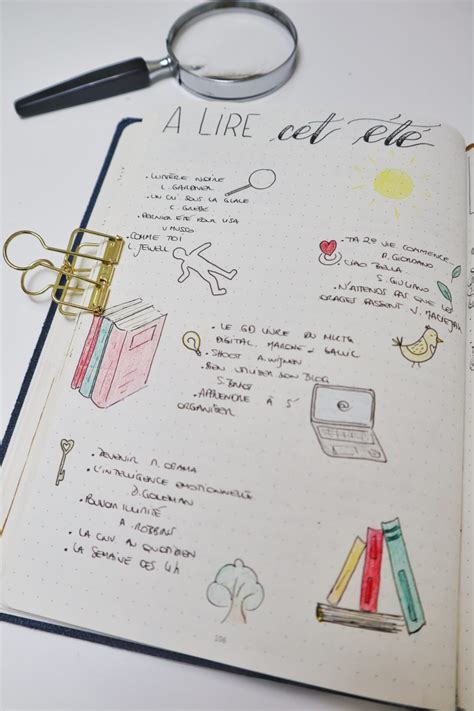 A LIRE cet été
. LUMIÈRE NOIRE
L. GARDNER
. UN CRI SOUS LA GLACE
C. GREBE
. DERNIER ÉTÉ POUR LISA
V MUSSO
. COMME TOI
L. JEWELL
. TA 2e VIE COMMENCE...
R. GIORDANO
CIAO BELLA
S. GIULIANO
. N'ATTENDS PAS QUE LES
ORAGES PASSENT V. MACIEJAK
. LE GD LIVRE DU MKTG
DIGITAL. MARCHE + GALLIC
. SHOOT A. WIJNEN
. BIEN UTILISER SON BLOG
S.
APPRENDRE À S'
ORGANISER
. DEVENIR M. OBAMA
. L'INTELLIGENCE EMOTIONNELLE
D. GOLEMAN
. POUVOIR ILLIMITÉ
A. ROBBINS
. LA CNV AU QUOTIDIEN
. LA SEMAINE DES 4H
106